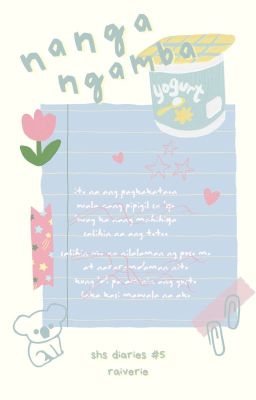 nanga
ngamba
yogurt
ito na ang pagkakataon
wala nang pipigil sa 'yo
wag ka nang mahihiya
sabihin na ang totoo
sabihin mo na nilalaman ng puso mo
at nararamdaman nito
baka kasi mawala na ako
shs diaries #5
raiverie